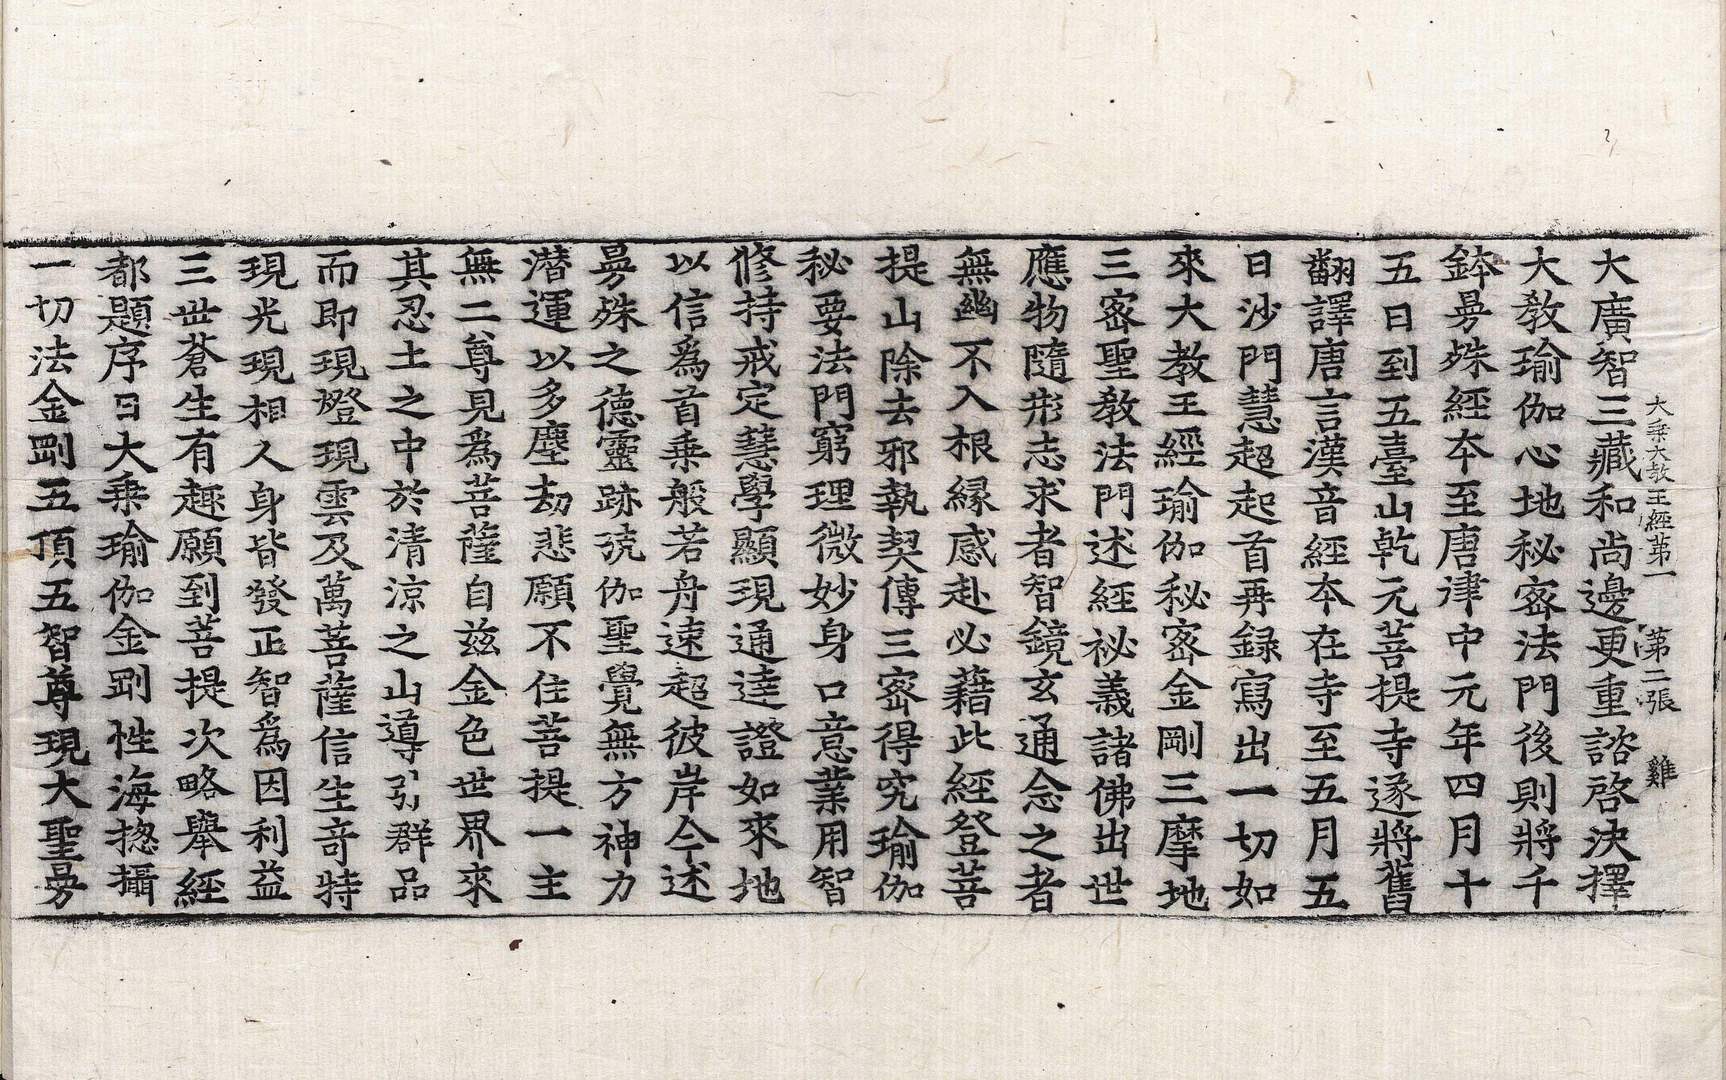 大乗大教王經第一　第二張　雞
大廣智三藏和尚邊更重諮啓決擇
大教瑜伽心地秘密法門後則將千
鉢曼殊經本至唐建中元年四月十
五日到五臺山乾元菩提寺遂將舊
翻譯唐言漢音經本在寺至五月五
日沙門慧超起首再録寫出一切如
來大教王經瑜伽秘密金剛三摩地
三密聖教法門述經祕義諸佛出世
應物隨形志求者智鏡玄通念之者
無幽不入根縁感赴必藉此經登菩
提山除去邪執契傳三密得究瑜伽
秘要法門窮理微妙身口意業用智
修持戒定慧學顯現通達證如來地
以信爲首乗般若舟速超彼岸今述
曼殊之德靈跡號伽聖覺無方神力
潜運以多塵劫悲願不住菩提一主
無二尊見為菩薩自兹金色世界來
其忍土之中於清涼之山導引群品
而即現燈現雲及萬菩薩信生竒特
現光現相人身皆發正智爲因利益
三世蒼生有趣願到菩提次略舉經
都題序曰大乗瑜伽金剛性海揔攝
一切法金剛五頂五智尊現大聖曼